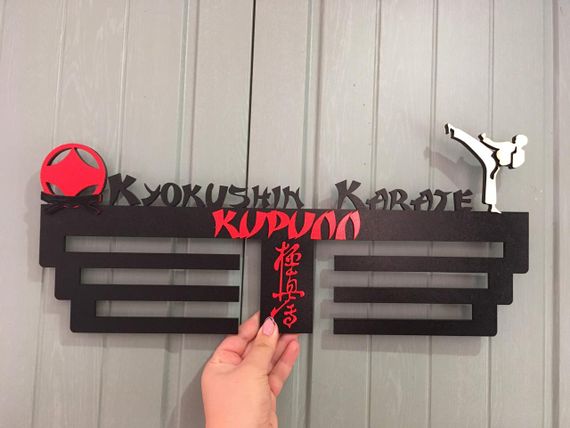 KYOKUSHIN KARATE
КИРИЛЛ
極真会